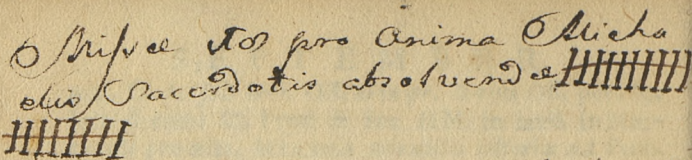 Missae 18 pro Anima Micha
elis Sacerdotis absolvendae